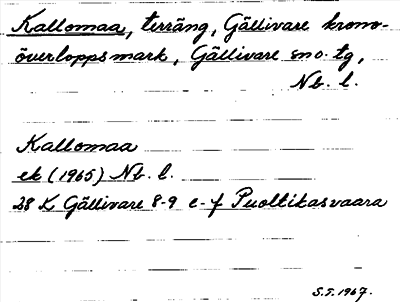 Kallomaa, terräng, Gällivare krono-
överloppsmark, Gällivare sno. tg,
Nb. l.
Kallomaa
ek (1965) Nb. l.
28 K Gällivare 8-9 e-f Puoltikasvaara
S.S. 1967.